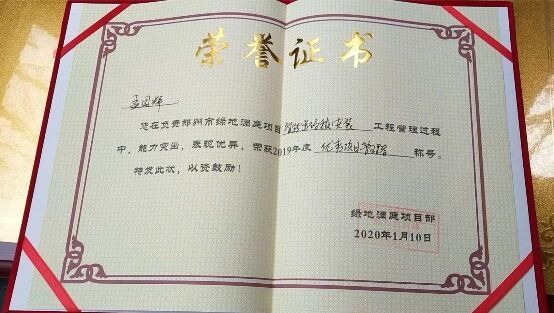 荣誉证书
孟国辉
您在负责郑州市绿地澜庭项目 工程管理过程
中，能力突出，表现优异，荣获2019年度 优秀项目经理 称号。
特发此状，以资鼓励！
绿地澜庭项目部
2020年1月10日